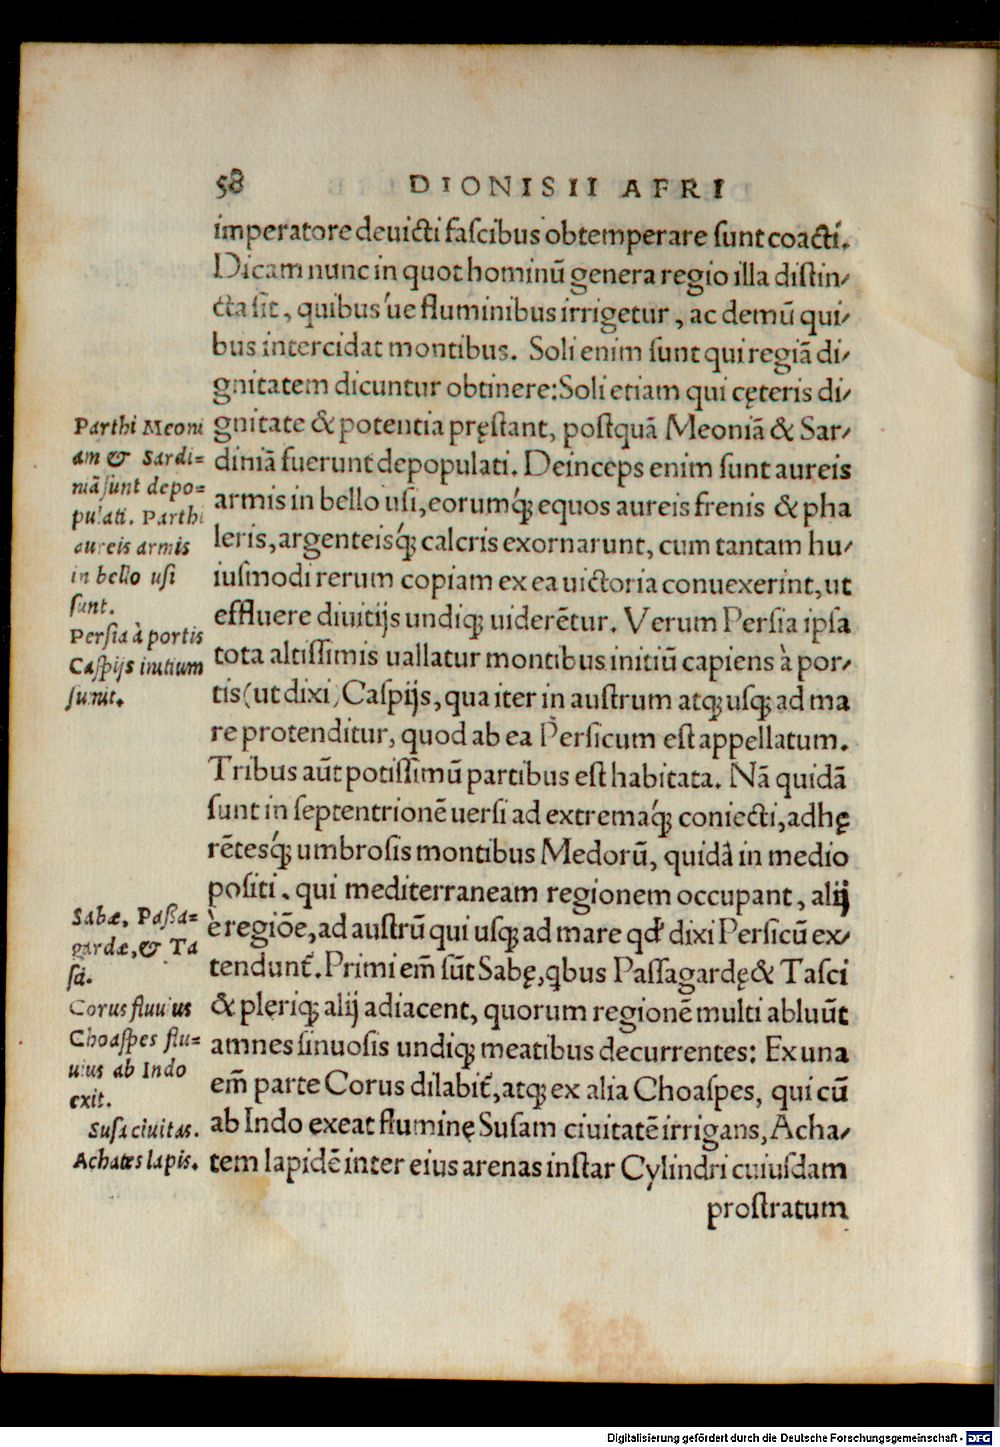 58 DIONISII AFRI
imperatore deuicti faſcibus obtemperare ſunt coacti.
Dicam nunc in quot hominū genera regio illa diſtin/
cta ſit, quibus ue fluminibus irrigetur, ac demū qui/
bus intercidat montibus. Soli enim ſunt qui regiā di/
gnitatem dicuntur obtinere: Soli etiam qui cęteris di/
gnitate & potentia pręſtant, poſtquā Meoniā & Sar/
diniā fuerunt depopulati. Deinceps enim ſunt aureis
armis in bello uſi, eorumq́; equos aureis frenis & pha
leris, argenteisq́; calcris exornarunt, cum tantam hu/
iuſmodi rerum copiam ex ea uictoria conuexerint, ut
effluere diuitijs undiq; uiderētur. Verum Perſia ipſa
tota altiſſimis uallatur montibus initiū capiens à por/
tis (ut dixi) Caſpijs, qua iter in auſtrum atq; uſq; ad ma
re protenditur, quod ab ea Perſicum eſt appellatum.
Tribus aūt potiſſimū partibus eſt habitata. Nā quidā
ſunt in ſeptentrionē uerſi ad extremaq́; coniecti, adhę
rētesq́; umbroſis montibus Medorū, quidā in medio
poſiti. qui mediterraneam regionem occupant, alij
è regiōe, ad auſtrū qui uſq; ad mare qd' dixi Perſicū ex/
tendunt̃. Primi em̃ ſūt Sabę, qbus Paſſagardę & Taſci
& plęriq; alij adiacent, quorum regionē multi abluūt
amnes ſinuoſis undiq; meatibus decurrentes: Ex una
em̃ parte Corus dilabit̃, atq; ex alia Choaſpes, qui cū
ab Indo exeat fluminę Suſam ciuitatē irrigans, Acha/
tem lapidē inter eius arenas inſtar Cylindri cuiuſdam
proſtratum
Parthi Meoni
am & Sardi=
niā ſunt depo=
pulati. Parthi
aureis armis
in bello uſi
ſunt.
Perſia à portis
Caſpijs initium
ſumit.
Sabæ, Paſſa=
gardæ, & Ta
ſci.
Corus fluuius
Choaſpes flu=
uius ab Indo
exit.
Suſa ciuitas.
Achates lapis.
Digitalisierung gefördert durch die Deutsche Forschungsgemeinschaft - DFG